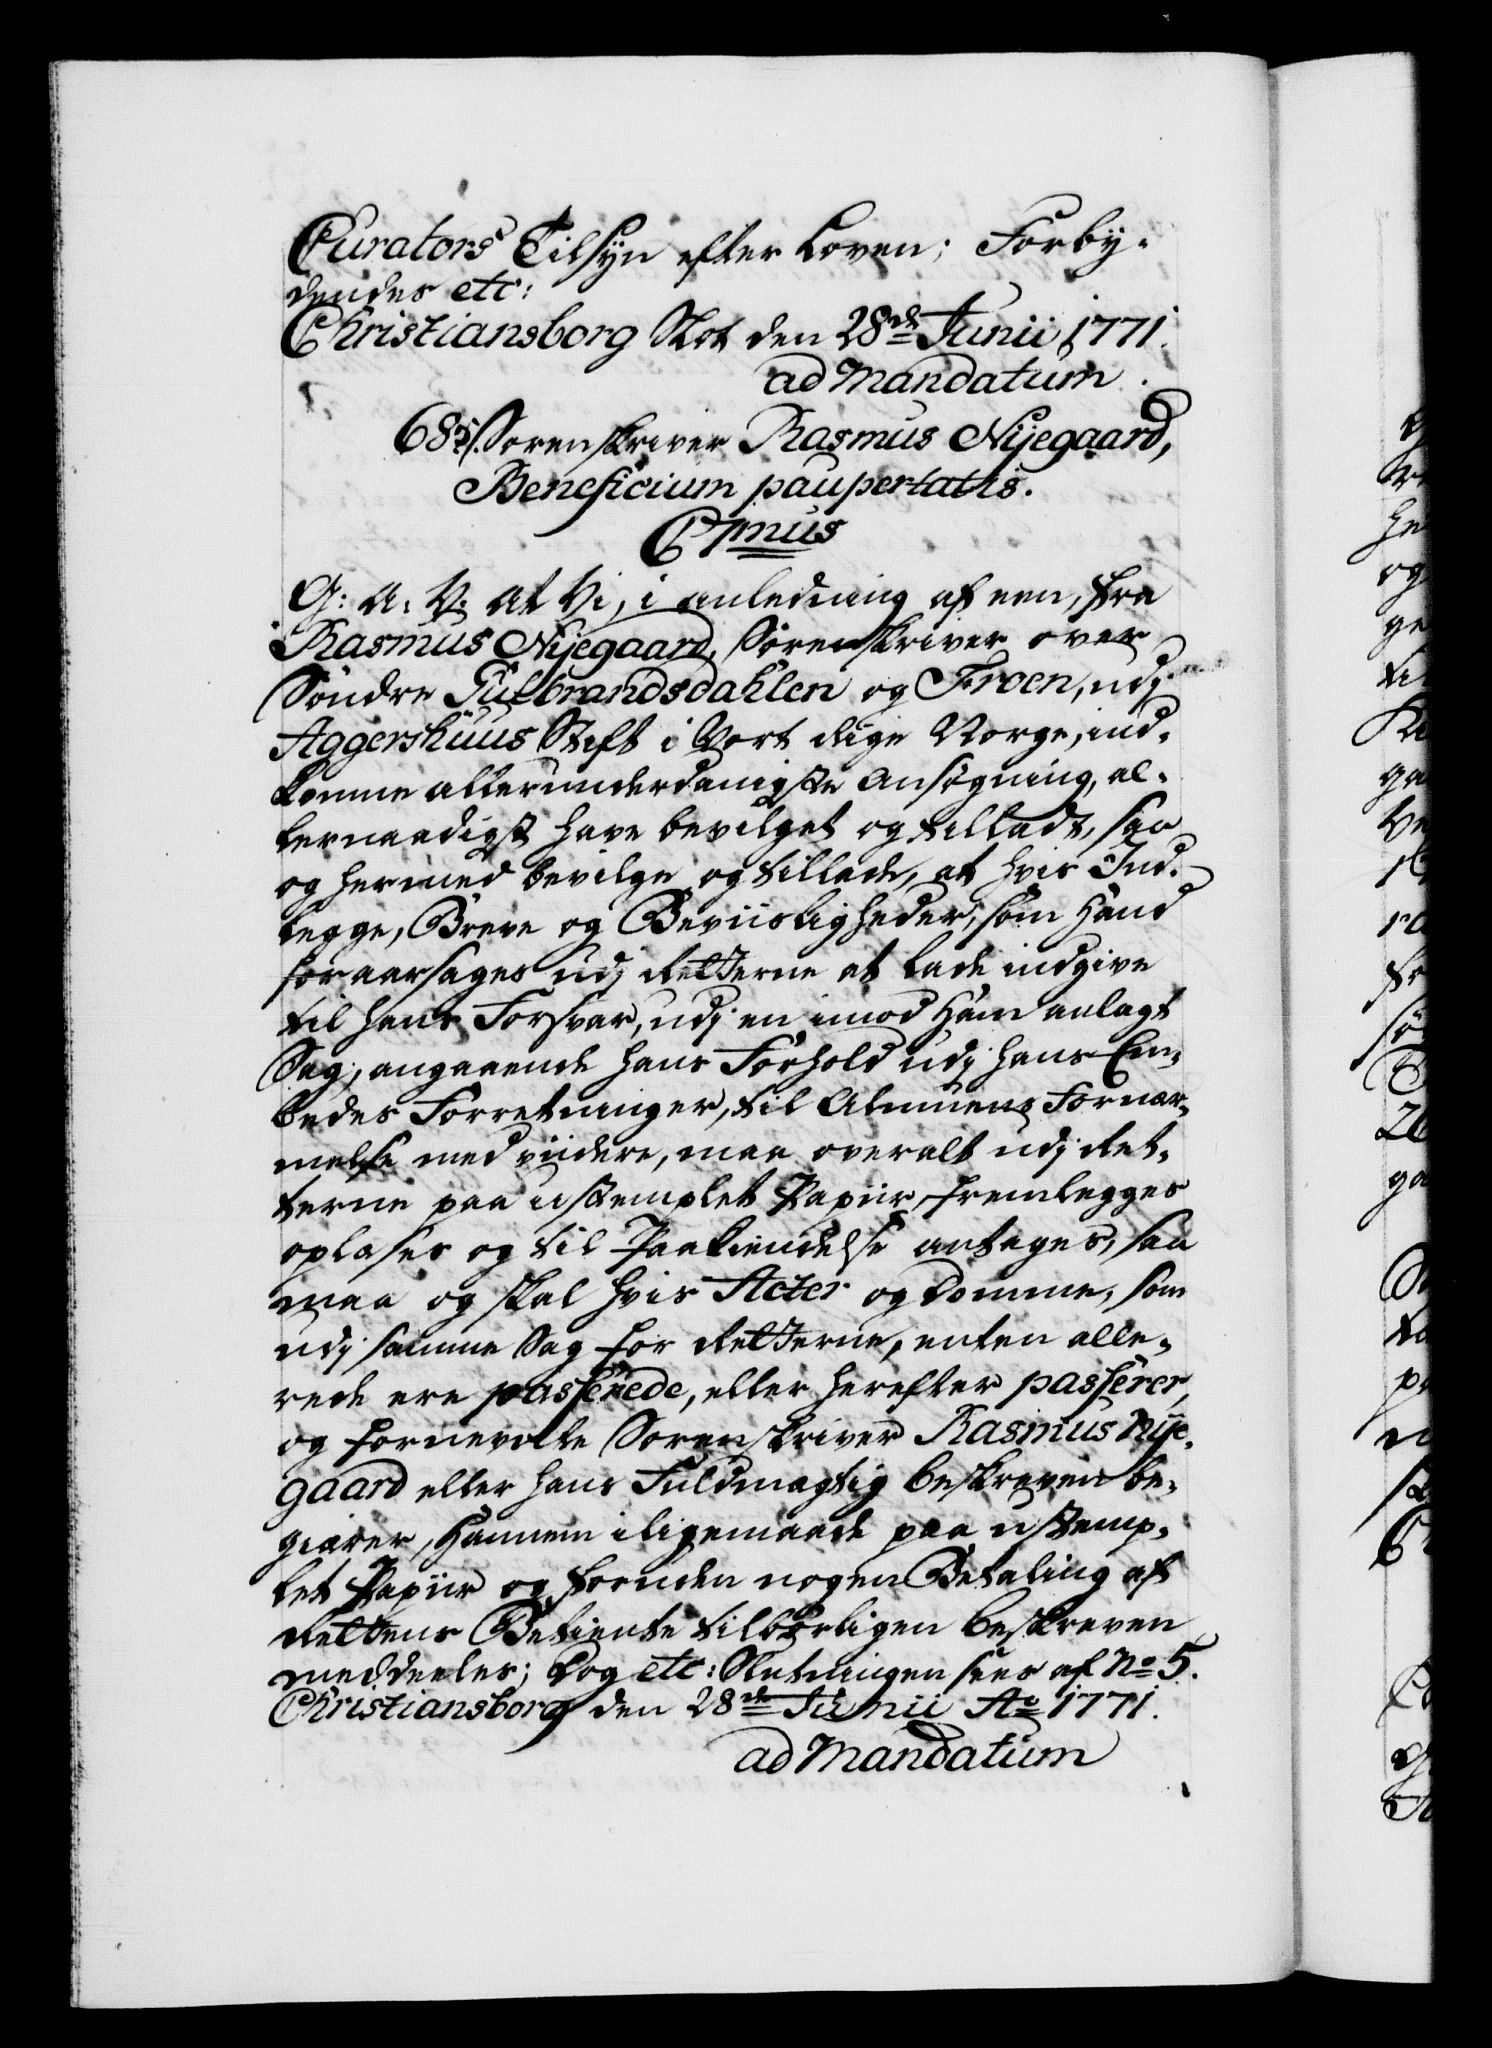 Curators Tilsyn efter Loven; Forby-
dendes etc:
Christiansborg Slot den 28de Junii 1771.
ad Mandatum.
685. Sorenskriver Rasmus Nijegaard,
Beneficium paupertatis.
C 7mus
G: A: V. At Vi, i anledning af een, fra
Rasmus Nijegaard, Sörenskriver over
Söndre Gulbrandsdahlen og Froen, udj
Aggershuus Stift i Vort Rige Norge, ind-
komme allerunderdanigste Ansögning, al-
lernaadigst have bevilget og tilladt, saa
og hermed bevilge og tillade, at hvis Ind-
legge, Breve og Beviisligheder, som Hand
foraarsages udj Retterne at lade indgive
til hans Forsvar, udj en imod Ham anlagt
Sag, angaaende hans Forhold udj hans Em-
bedes Forretninger, til Almuens Fornær-
melse med viidere, maa overalt udj Ret-
terne paa ustemplet Papiir, fremlegges
oplæses og til Paakiendelse antages, saa
maa og skal hvis Acter og Domme, som
udj samme Sag for Retterne, enten alle-
rede ere passerede, eller herefter passerer,
og fornevnte Sorenskriver Rasmus Nije-
gaard eller hans Fuldmægtig beskreven be-
giærer, Hannem iligemaade paa ustemp-
let Papiir og foruden nogen Betaling af
Rettens Betiente tilbørligen beskreven
meddeeles; Dog etc: Slutningen sees af No 5.
Christiansborg den 28de Junii Ao 1771.
ad Mandatum